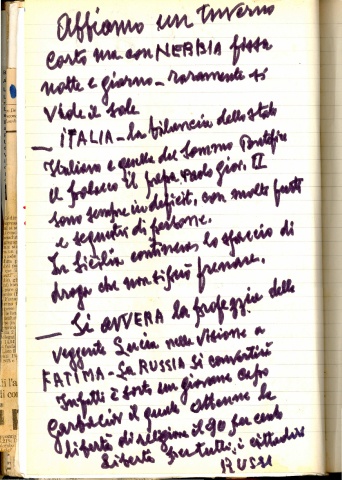 Abbiamo un inverno
corto ma con NEBBIA fissa
notte e giorno - raramente si
vede il sole
- ITALIA - la bilancia dello stato
Italiano e quella del Sommo Pontefice
il Papa Paolo Giov. II
sono sempre in deficit, con molti furti
e sequestri di persone.
In Sicilia continua lo spaccio di
droga che non si può frenare.
- Si AVVERA la profezia della
veggente Lucia nella visione a
FATIMA - La RUSSIA si convertirà
Infatti è sorto un giovane capo
Garbaciov il quale ottenne la
libertà di religione il 90 per cento
libertà per tutti i cittadini
RUSSI